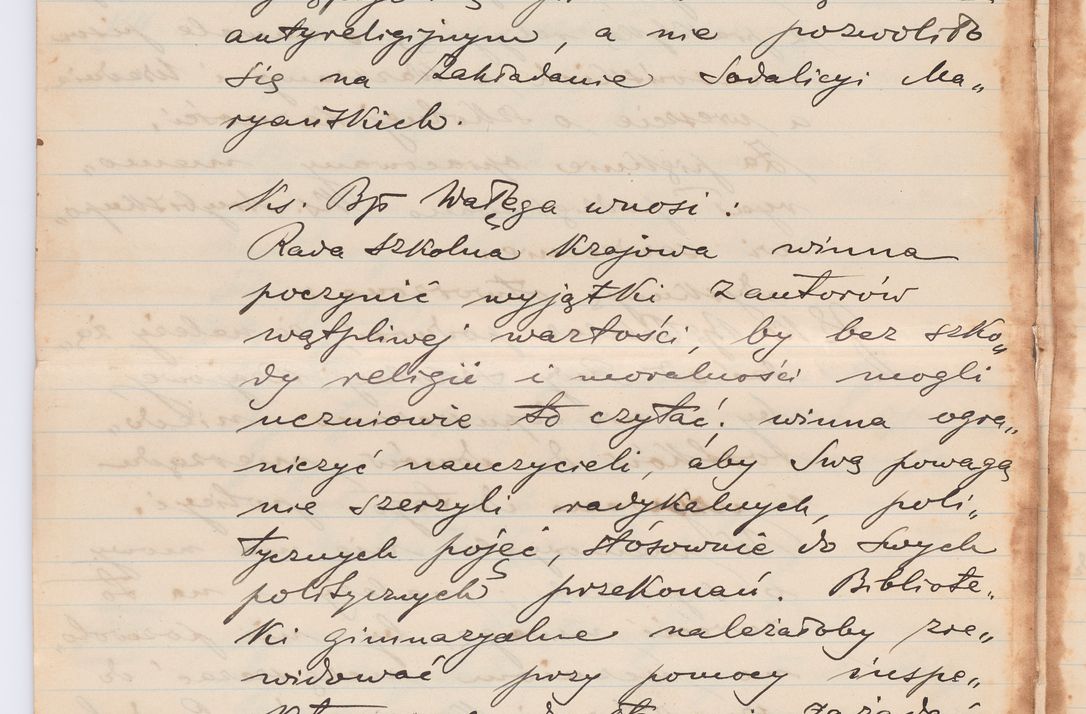 antyreligijnym, a nie pozwoliło
się na Zakładanie Sodalicyi Ma„
ryańskich.
Ks. Bp Wałęga wnosi :
Rada szkolna Krajowa winna
poczynić wyjątki z autorów
wątpliwej wartości, by bez szko„
dy religii i moralności mogli
uczniowie to czytać. winna ogra„
niczyć nauczycieli, aby swą powagą
nie szerzyli radykalnych, poli„
tycznych pojęć, stósownie do swych
politycznych przekonań. Bibliote„
ki gimnazyalne należałoby zre„
widować przy pomocy inspe„